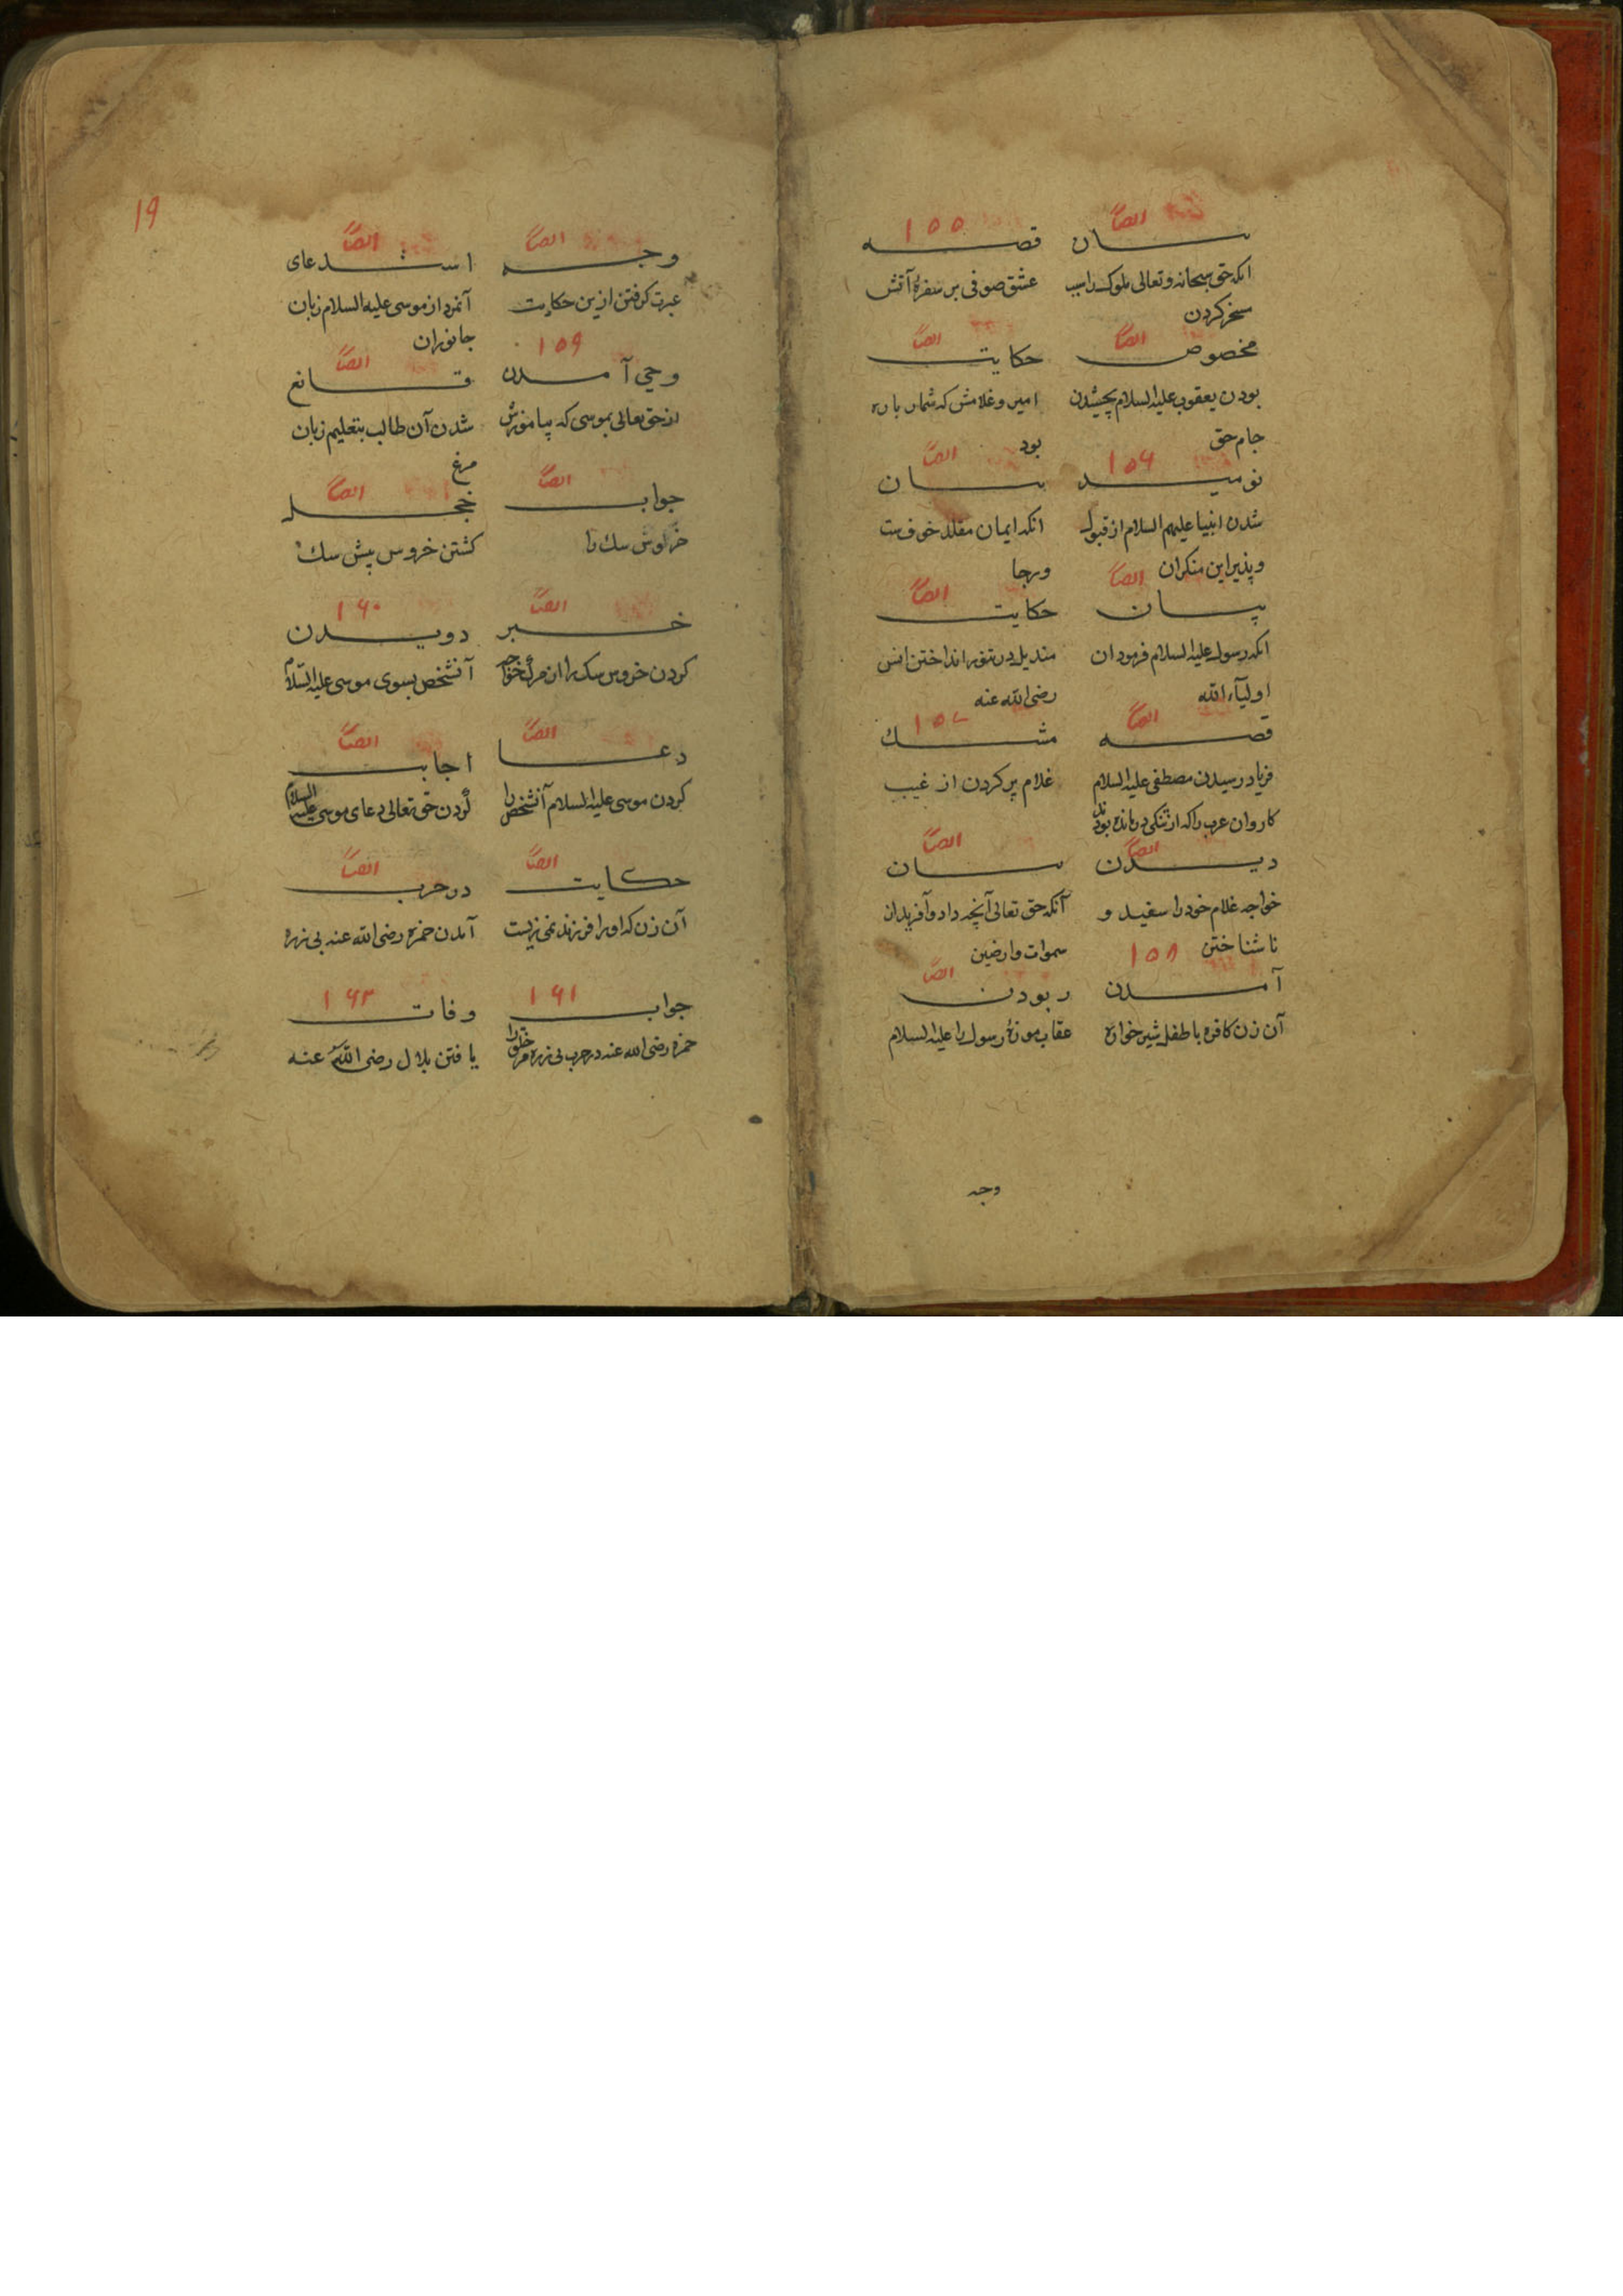 ایضاً
بیان
انکه حق سبحانه و تعالی ملوک را سبب
سخر کردن
۱۵۵
قصه
عشق صوفی بر سفرهٔ آتش
ایضاً
مخصوص
بودن یعقوب علیه السلام بچشیدن
جام حق
ایضاً
حکایت
امیر و غلامش که شمار باره
بود
۱۵۶
نومید
شدن انبیا علیهم السلام از قبول
و پذیرا این منکران
ایضاً
بیان
انکه ایمان مقلد خوفست
ورجا
ایضاً
بیان
انکه رسول علیه السلام فرمود ان
اولیآء الله
ایضاً
حکایت
مندیل در تنور انداختن انس
رضی الله عنه
ایضاً
قصه
فریاد رسیدن مصطفی علیه السلام
کاروان عرب را که از تنکی درمانده بودند
۱۵۷
مشک
غلام پر کردن از غیب
ایضاً
دیدن
خواجه غلام خود را سفید و
ناشناختن
ایضاً
بیان
آنکه حق تعالی آنچه داد و آفرید از
سموات وارضین
۱۵۸
آمدن
آن زن کافره با طفل شیرخواره
ایضاً
ربودن
عقاب موزهٔ رسول را علیه السلام
وجه
۱۹
ایضاً
وجه
عبرت کرفتن ازین حکایت
ایضاً
استدعای
آنمرد از موسی علیه السلام زبان
جانوران
۱۵۹
وحی آمدن
از حق تعالی بموسی که بیاموزش
ایضاً
قانع
شدن آن طالب بتعلیم زبان
مرغ
ایضاً
جواب
خروس سک را
ایضاً
خجل
کشتن خروس پیش سک
ایضاً
خبر
کردن خروس سک را از مرک خواجه
۱۶۰
دویدن
آنشخص بسوی موسی علیه السلام
ایضاً
دعا
کردن موسی علیه السلام آنشخص را
ایضاً
اجابت
کردن حق تعالی دعای موسی علیه السلام
ایضاً
حکایت
آن زن که او را فرزند نمی زیست
ایضاً
در حرب
آمدن حمزه رضی الله عنه بی زره
۱۶۱
جواب
حمزه رضی الله عنه در حرب بی زره مر خلق را
۱۶۳
وفات
یافتن بلال رضی الله عنه